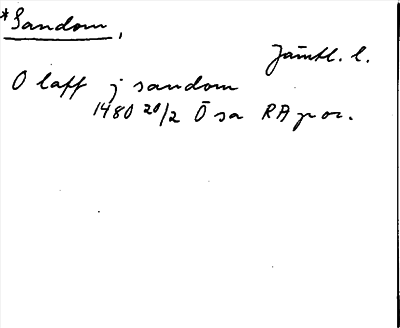 *Sandom,
Jämtl. l.
Olaff j sandom
1480 20/2 Ösa RA p or.